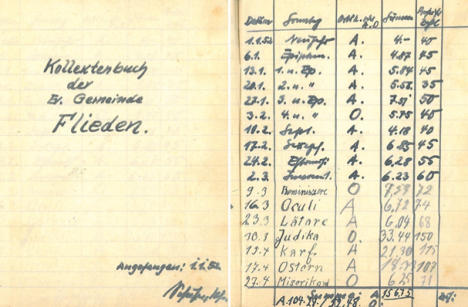 Kollektenbuch
der
Ev. Gemeinde
Flieden.
Angefangen: 1.1.52
Datum Sonntag
1.1.52 Neujahr A. 4.- 40
6.1. Epiphan. A. 4.87 45
13.1. 1. n. Ep. A. 5.84 45
20.1. 2. n. " A. 5.55 35
27.1. 3. n. Ep. A. 7.51 50
3.2. 4. n. " O. 5.75 40
10.2. Sept. A. 4.18 40
17.2. Sexag. A. 6.85 45
24.2. Estomihi A. 6.28 55
2.3. Invocavit. A. 6.23 60
9.3 Reminiscere O 7,59 72
16.3 Oculi A 6,72 74
23.3 Lätare A 6,04 68
Judika O. 33,44 150
13.4 Karf. A 21,30
17.4 Ostern A 107
27.4 Miserikord O 71
Summa: A:
A.104.